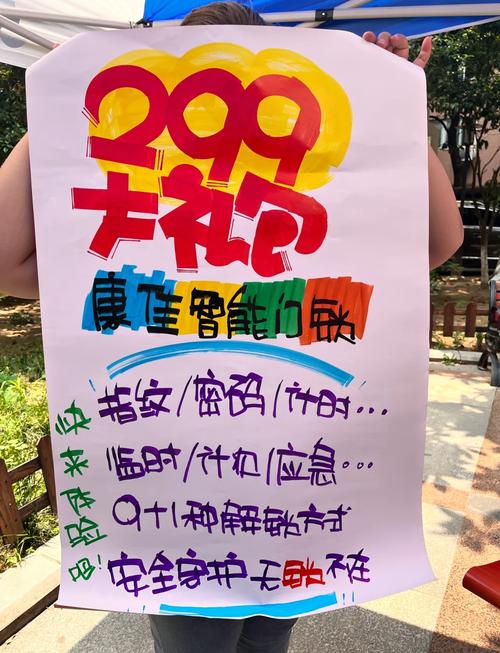 299
大礼包
康佳智能门锁
指纹/密码/计时...
临时/计次/应急...
9+1种解锁方式
安全守护无锁不在
快来体验吧!